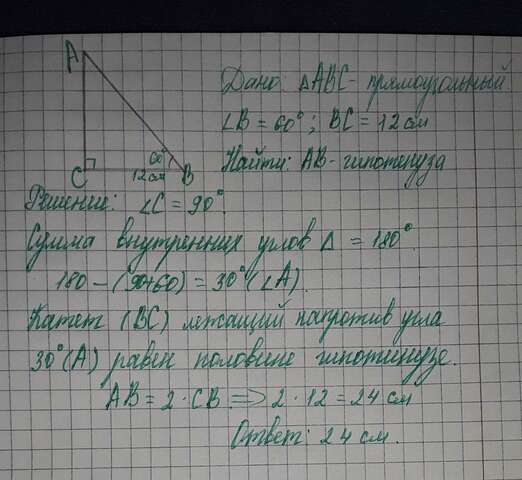 A
C
B
60°
12см
Дано: ΔABC - прямоугольный.
∠B = 60°; BC = 12 см
Найти: AB - гипотенуза
Решение: ∠C = 90°.
Сумма внутренних углов Δ = 180°
180 - (90+60) = 30° (∠A).
Катет (BC) лежащий напротив угла
30° (A) равен половине гипотинузе.
AB = 2 · CB => 2 · 12 = 24 см
Ответ: 24 см.